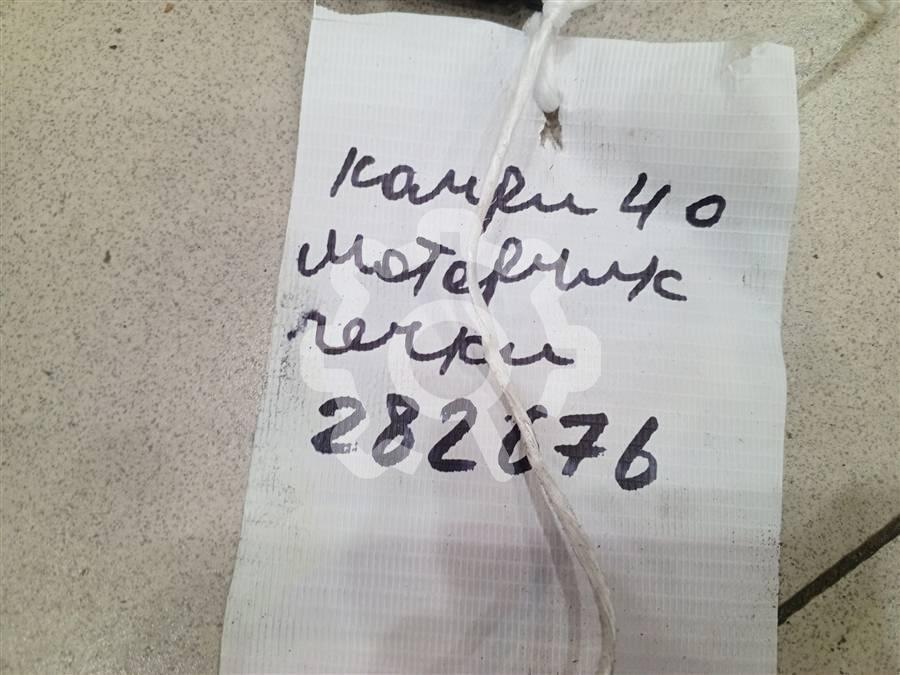 камри 40
моторчик
печки
282676